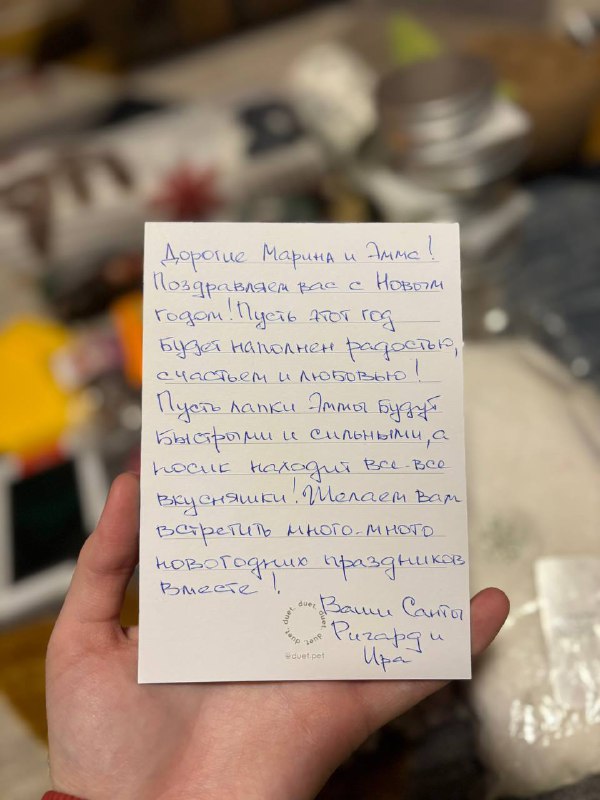 Дорогие Марина и Эмма!
Поздравляем вас с Новым
годом! Пусть этот год
будет наполнен радостью,
счастьем и любовью!
Пусть лапки Эммы будут
быстрыми и сильными, а
носик находит все-все
вкусняшки! Желаем вам
встретить много-много
новогодних праздников
вместе!
Ваши Санты
Ричард и
Ира
duet. duet. duet. duet. duet.
@duet.pet